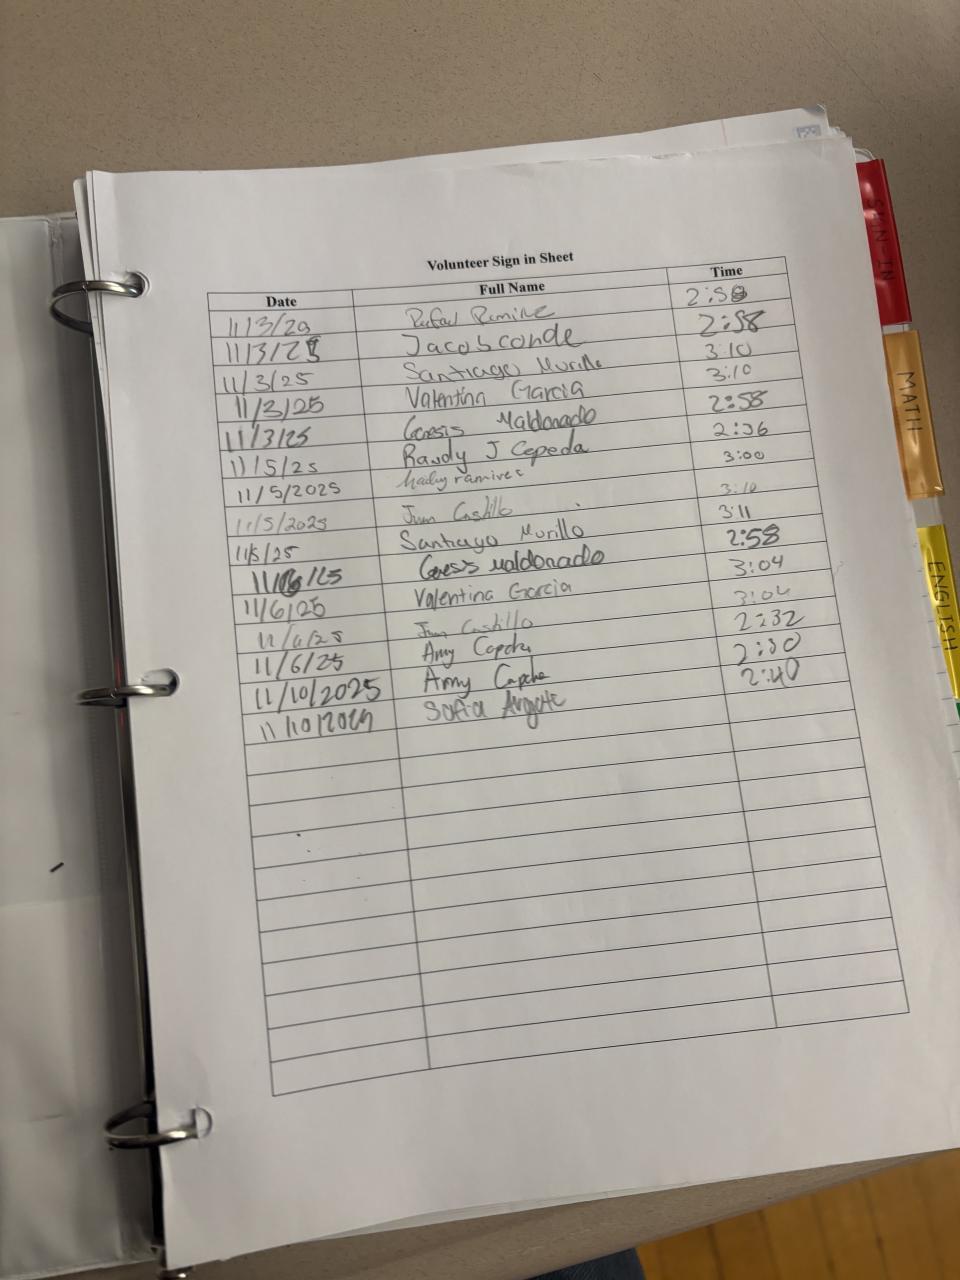 Volunteer Sign in Sheet
Date Full Name Time
11/3/29 Rafael Ramirez 2:58
11/3/25 Jacob conde 2:58
11/3/25 Santiago Murillo 3:10
11/3/25 Valentina Garcia 3:10
11/3/25 Genesis Maldonado 2:58
11/5/25 Randy J Cepeda 2:56
11/5/2025 ramires 3:00
11/5/2025 Juan Castillo 3:10
11/5/25 Santiago Murillo 3:11
11/6/25 Genesis maldonado 2:58
11/6/25 Valentina Garcia 3:04
11/6/25 Juan Castillo 3:04
11/6/25 Amy 2:32
11/10/2025 Amy 2:30
11/10/2025 Sofia Argote 2:40
SIGN-IN
MATH
ENGLISH